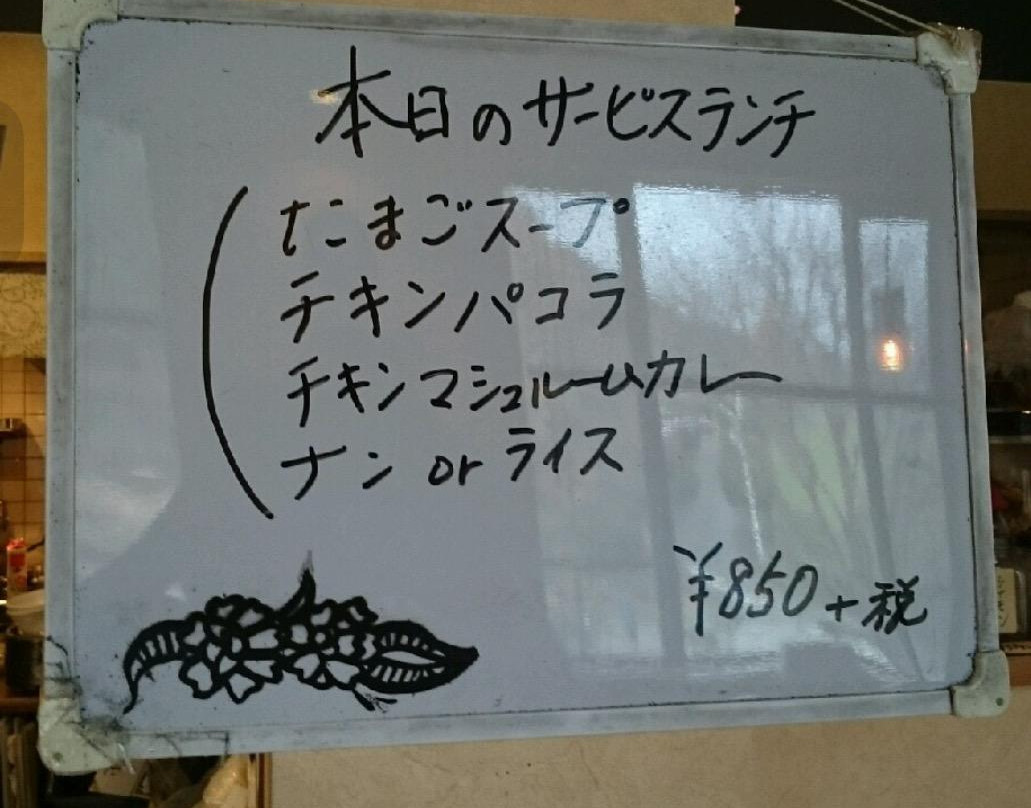 本日のサービスランチ
たまごスープ
チキンパコラ
チキンマシュルームカレー
ナン or ライス
¥850+税